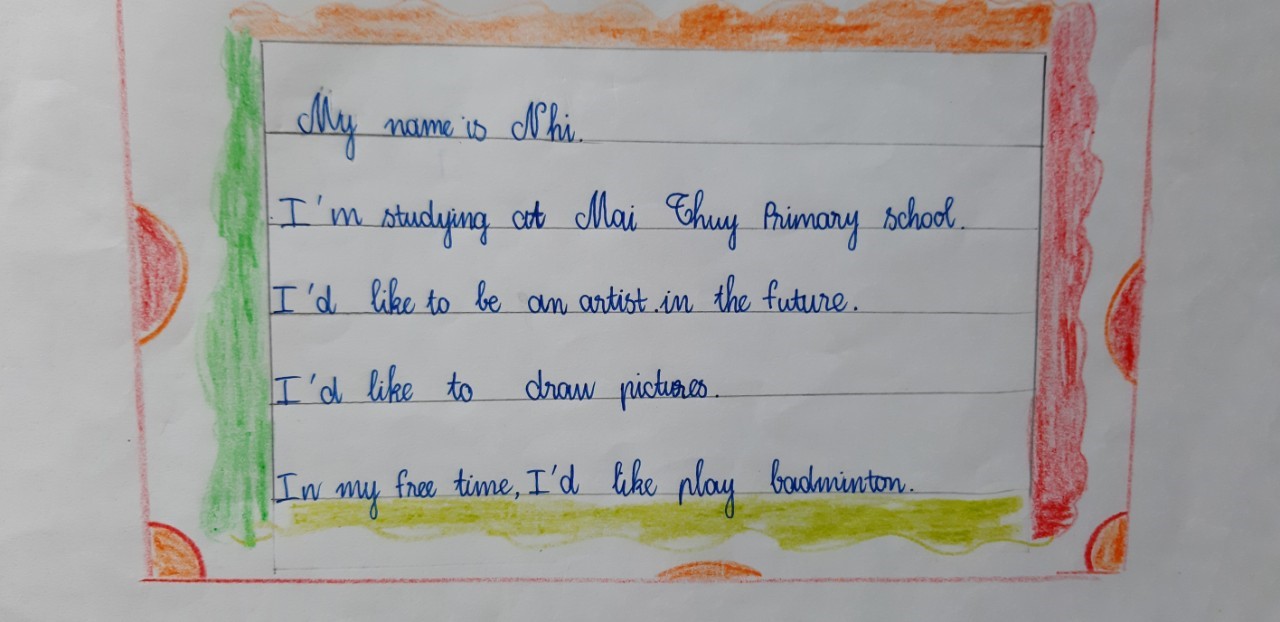 My name is Nhi.
I'm studying at Mai Thuy Primary school.
I'd like to be an artist.in the future.
I'd like to draw pictures.
In my free time, I'd like play badminton.